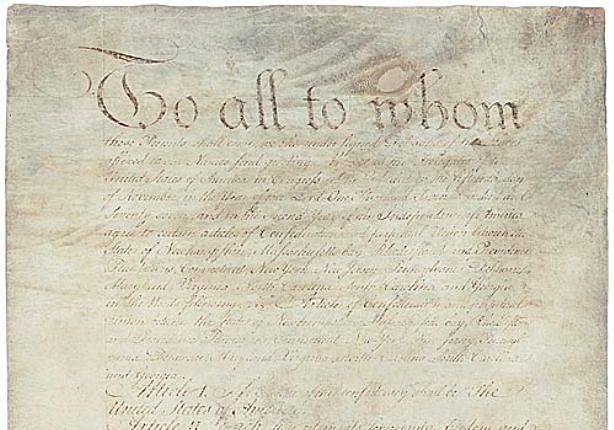 To all to whom
these Presents shall come, we the under signed Delegates of the States
affixed to our Names send greeting. Whereas the Delegates of the
United States of America in Congress assembled did on the fifteenth day
of November in the Year of our Lord One Thousand Seven Hundred and
Seventy seven, and in the Second Year of the Independence of America
agree to certain articles of Confederation and perpetual Union between the
States of Newhampshire, Massachusetts-bay, Rhodeisland and Providence
Plantations, Connecticut, New York, New Jersey, Pennsylvania, Delaware,
Maryland, Virginia, North-Carolina, South-Carolina and Georgia
in the Words following, viz. Articles of Confederation and perpetual
Union between the states of Newhampshire, Massachusetts-bay, Rhodeisland
and Providence Plantations, Connecticut, New York, New Jersey, Pennsyl
vania, Delaware, Maryland, Virginia, North-Carolina, South-Carolina
and Georgia.
Article I. The Stile of this confederacy shall be "The
United States of America."
Article II. Each state retains its sovereignty, freedom and